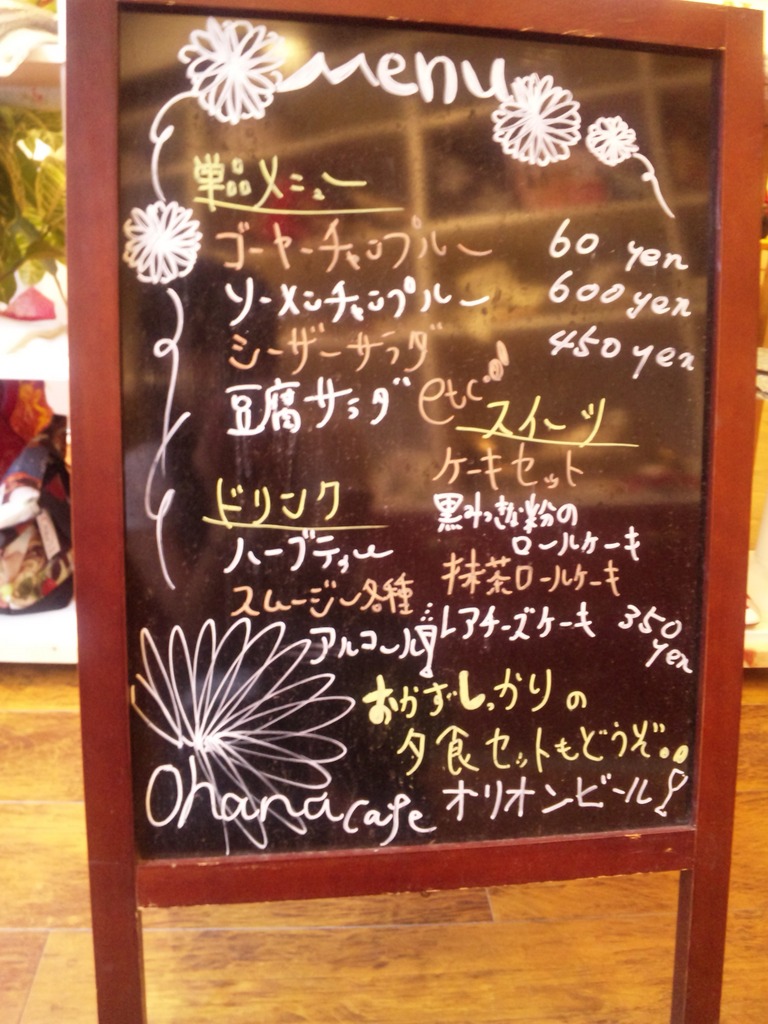 menu
単品メニュー
ゴーヤーチャンプルー 60 yen
ソーメンチャンプルー 600 yen
シーザーサラダ 450 yen
豆腐サラダ etc...
スイーツ
ケーキセット
黒みつきな粉の
ロールケーキ
抹茶ロールケーキ
レアチーズケーキ 350 yen
ドリンク
ハーブティー
スムージー各種
アルコール
おかずしっかりの
夕食セットもどうぞ..
オリオンビール!
Ohana cafe